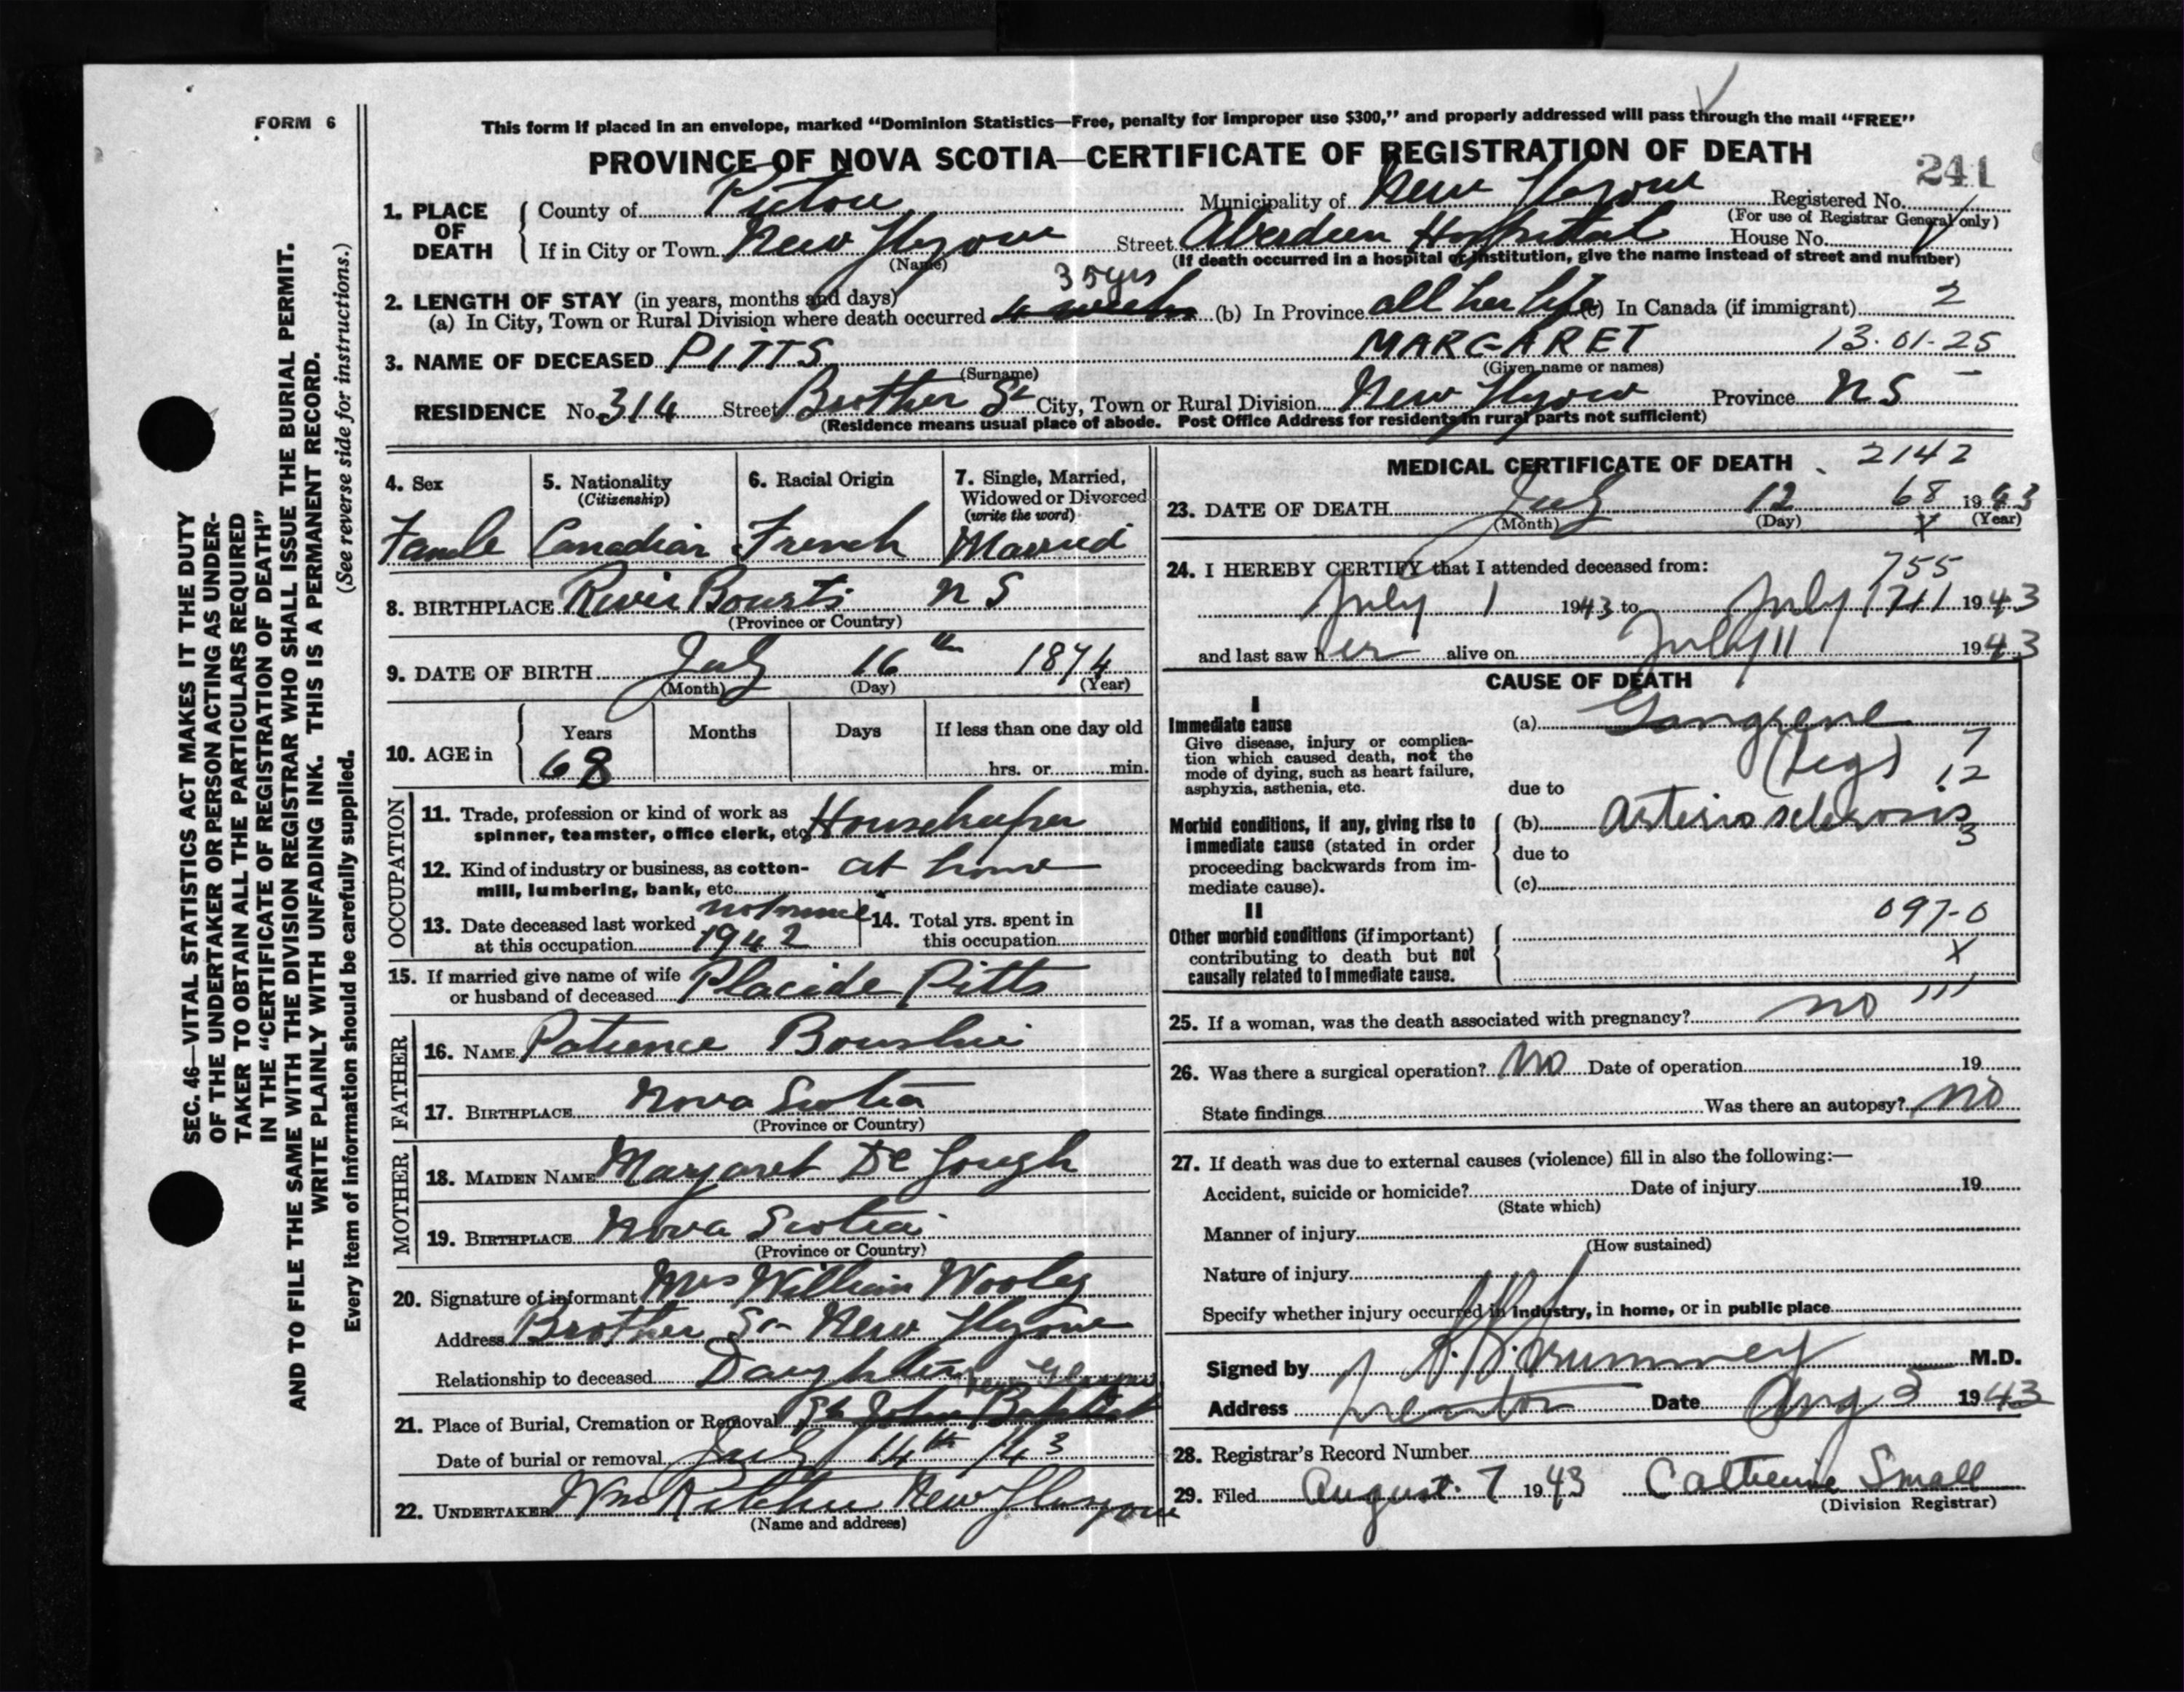 FORM 6
This form if placed in an envelope, marked “Dominion Statistics—Free, penalty for improper use $300,” and properly addressed will pass through the mail “FREE”
PROVINCE OF NOVA SCOTIA—CERTIFICATE OF REGISTRATION OF DEATH
241
1. PLACE OF DEATH County of Pictou Municipality of New Glasgow Registered No.
(For use of Registrar General only)
If in City or Town New Glasgow Street Aberdeen Hospital House No.
(Name) (If death occurred in a hospital or institution, give the name instead of street and number)
35 yrs
2. LENGTH OF STAY (in years, months and days)
(a) In City, Town or Rural Division where death occurred 4 weeks (b) In Province all her life (c) In Canada (if immigrant) 2
3. NAME OF DECEASED PITTS MARGARET 13-01-25
(Surname) (Given name or names)
RESIDENCE No. 314 Street Brother St City, Town or Rural Division New Glasgow Province N S
(Residence means usual place of abode. Post Office Address for residents in rural parts not sufficient)
4. Sex 5. Nationality (Citizenship) 6. Racial Origin 7. Single, Married, Widowed or Divorced (write the word)
Famle Canadian French Married
8. BIRTHPLACE N S
(Province or Country)
9. DATE OF BIRTH July 16th 1874
(Month) (Day) (Year)
10. AGE in Years Months Days If less than one day old
68 hrs. or min.
OCCUPATION
11. Trade, profession or kind of work as
spinner, teamster, office clerk, etc. Housekeeper
12. Kind of industry or business, as cotton-
mill, lumbering, bank, etc. at home
13. Date deceased last worked
at this occupation 1942
14. Total yrs. spent in
this occupation
15. If married give name of wife
or husband of deceased Placide Pitts
FATHER
16. NAME Patience
17. BIRTHPLACE Nova Scotia
(Province or Country)
MOTHER
18. MAIDEN NAME Margaret De Gough
19. BIRTHPLACE Nova Scotia
(Province or Country)
20. Signature of informant Mrs William Wooley
Address Brother St New Glasgow
Relationship to deceased Daughter
New Glasgow
21. Place of Burial, Cremation or Removal St John Baptist
Date of burial or removal July 14th /43
22. UNDERTAKER New Glasgow
(Name and address)
MEDICAL CERTIFICATE OF DEATH 2142
23. DATE OF DEATH July 12 68 1943
(Month) (Day) (Year)
24. I HEREBY CERTIFY that I attended deceased from:
755
July 1 1943 to July 11 1943
and last saw her alive on July 11 1943
CAUSE OF DEATH
I
Immediate cause
Give disease, injury or complica-
tion which caused death, not the
mode of dying, such as heart failure,
asphyxia, asthenia, etc.
(a) Gangrene
(legs) 7
12
due to
Morbid conditions, if any, giving rise to
immediate cause (stated in order
proceeding backwards from im-
mediate cause).
(b) Arteriosclerosis
3
due to
(c)
II
Other morbid conditions (if important)
contributing to death but not
causally related to immediate cause.
097-0
X
25. If a woman, was the death associated with pregnancy? no
26. Was there a surgical operation? No Date of operation 19
State findings Was there an autopsy? No
27. If death was due to external causes (violence) fill in also the following:—
Accident, suicide or homicide? Date of injury 19
(State which)
Manner of injury
(How sustained)
Nature of injury
Specify whether injury occurred in industry, in home, or in public place
Signed by M.D.
Address Trenton Date Aug 5 1943
28. Registrar's Record Number
29. Filed August 7 1943 Catherine Small
(Division Registrar)
SEC. 46—VITAL STATISTICS ACT MAKES IT THE DUTY
OF THE UNDERTAKER OR PERSON ACTING AS UNDER-
TAKER TO OBTAIN ALL THE PARTICULARS REQUIRED
IN THE “CERTIFICATE OF REGISTRATION OF DEATH”
AND TO FILE THE SAME WITH THE DIVISION REGISTRAR WHO SHALL ISSUE THE BURIAL PERMIT.
WRITE PLAINLY WITH UNFADING INK. THIS IS A PERMANENT RECORD.
Every item of information should be carefully supplied. (See reverse side for instructions.)